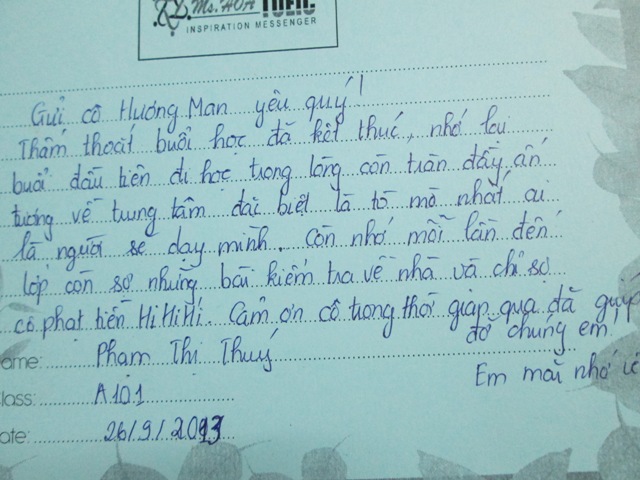 Ms. HOA TOEIC
INSPIRATION MESSENGER
Gửi cô Hương Man yêu quý!
Thấm thoát buổi học đã kết thúc, nhớ lại
buổi đầu tiên đi học trong lòng còn tràn đầy ấn
tượng về trung tâm đặc biệt là tò mò nhất ai
là người sẽ dạy mình. Còn nhớ mỗi lần đến
lớp còn sợ những bài kiểm tra về nhà và chỉ sợ
cô phạt tiền Hi Hi Hi. Cảm ơn cô trong thời giạp qua đã giúp
đỡ chúng em.
ame: Phạm Thị Thuý
Em mãi nhớ
lass: A101
ate: 26/9/2013